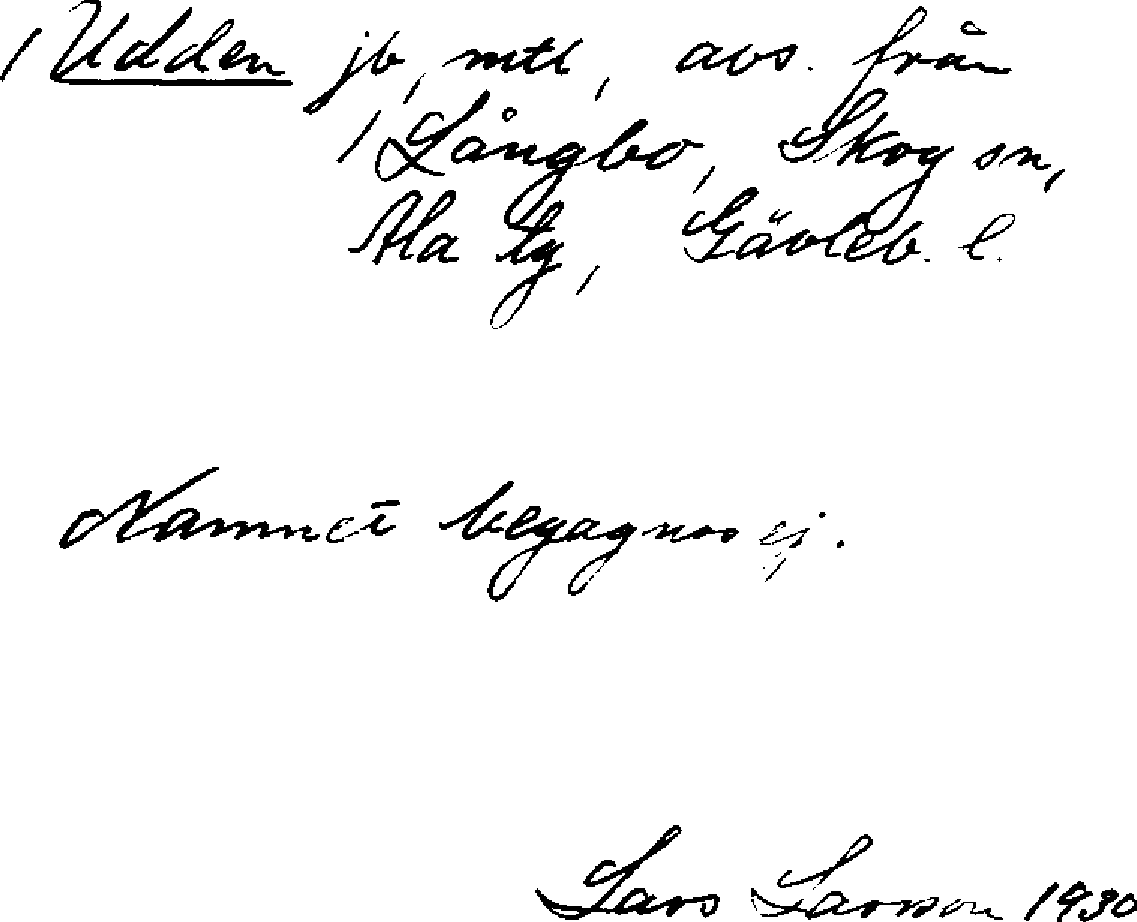 / Udden jb, mtl, avs. från
/ Långbo, Skog sn,
Ala tg, Gävleb. l.
Namnet begagnas ej.
Lars Larsson 1930